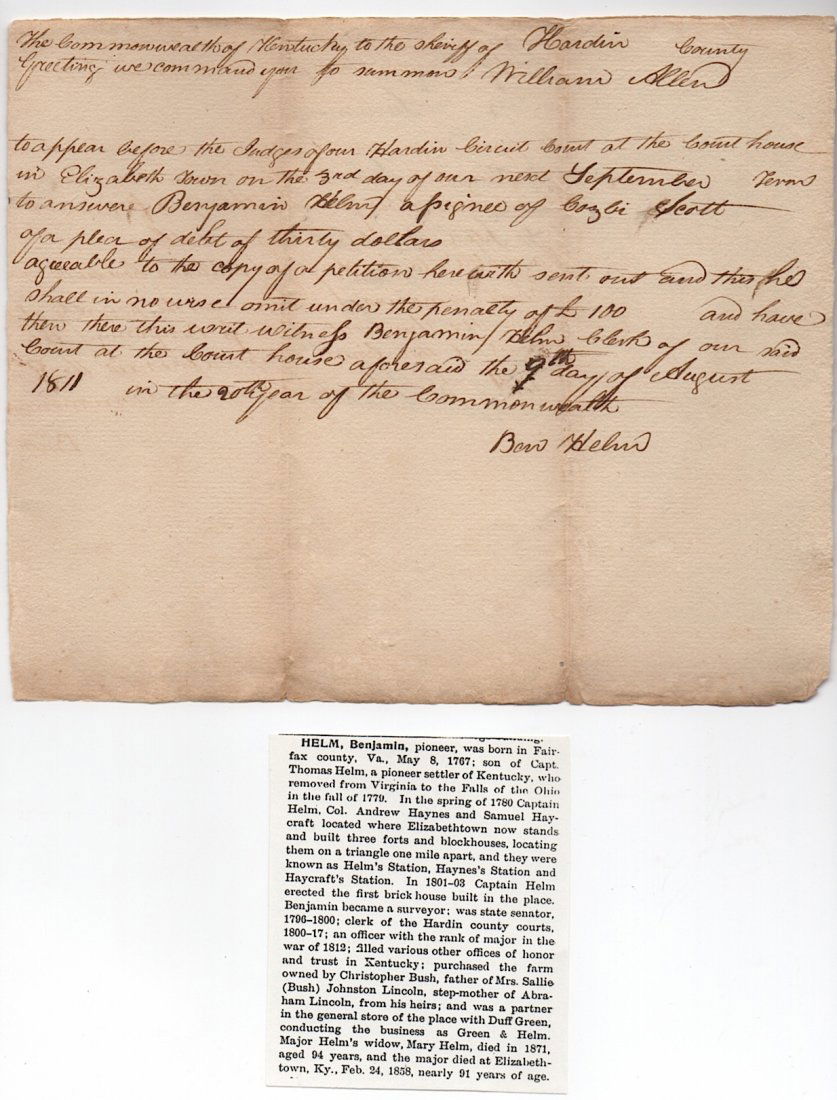 The Commonwealth of Kentucky to the sheriff of Hardin County
Greeting we command you to summons William Allen
to appear before the Judges of our Hardin Circuit Court at the Court house
in Elizabeth Town on the 3rd day of our next September Term
to answere Benjamin Helm assignee of Cozbi Scott
of a plea of debt of thirty dollars
agreeable to the copy of a petition herewith sent out and this he
shall in no wise omit under the penalty of £ 100 and have
then there this writ witness Benjamin Helm Clerk of our said
Court at the Court house aforesaid the 9th day of August
1811 in the 20th year of the Commonwealth
Ben Helm
HELM, Benjamin, pioneer, was born in Fair-
fax county, Va., May 8, 1767; son of Capt.
Thomas Helm, a pioneer settler of Kentucky, who
removed from Virginia to the Falls of the Ohio
in the fall of 1779. In the spring of 1780 Captain
Helm, Col. Andrew Haynes and Samuel Hay-
craft located where Elizabethtown now stands
and built three forts and blockhouses, locating
them on a triangle one mile apart, and they were
known as Helm's Station, Haynes's Station and
Haycraft's Station. In 1801-03 Captain Helm
erected the first brick house built in the place.
Benjamin became a surveyor; was state senator,
1796-1800; clerk of the Hardin county courts,
1800-17; an officer with the rank of major in the
war of 1812; filled various other offices of honor
and trust in Kentucky; purchased the farm
owned by Christopher Bush, father of Mrs. Sallie
(Bush) Johnston Lincoln, step-mother of Abra-
ham Lincoln, from his heirs; and was a partner
in the general store of the place with Duff Green,
conducting the business as Green & Helm.
Major Helm's widow, Mary Helm, died in 1871,
aged 94 years, and the major died at Elizabeth-
town, Ky., Feb. 24, 1858, nearly 91 years of age.